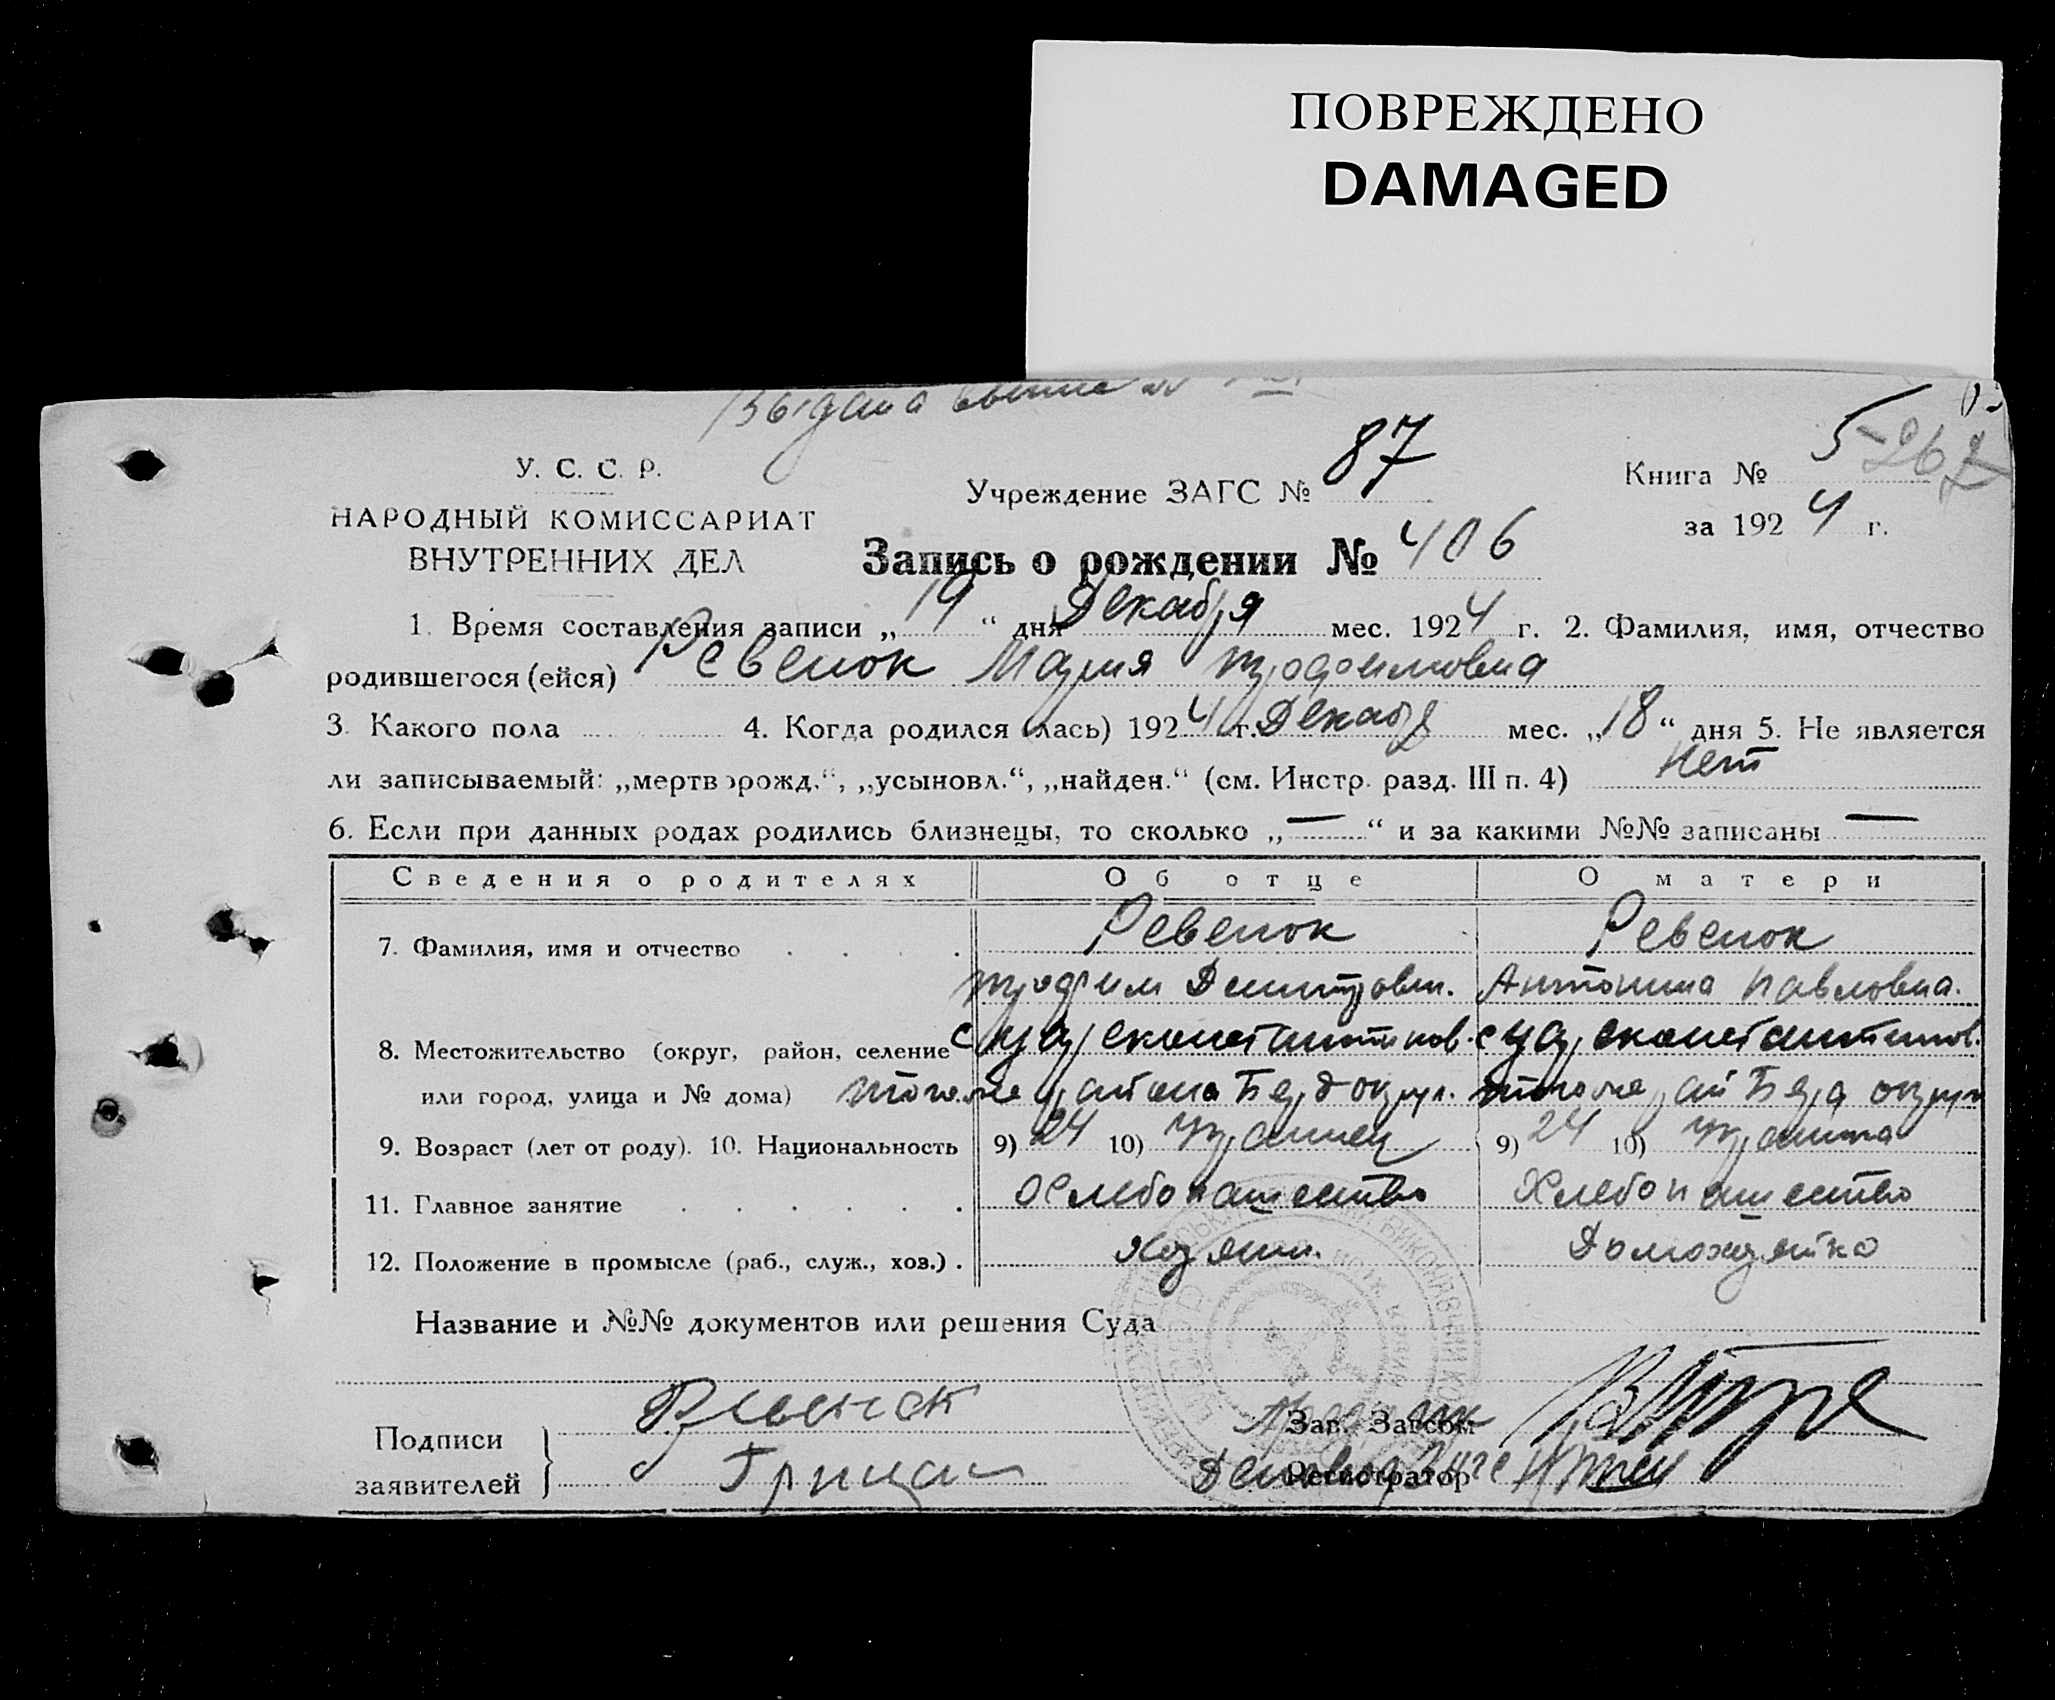 ПОВРЕЖДЕНО
DAMAGED
Выдана
У. С. С. Р.
НАРОДНЫЙ КОМИССАРИАТ
ВНУТРЕННИХ ДЕЛ
Учреждение ЗАГС № 87
Книга № 5
за 1924 г.
Запись о рождении № 406
1. Время составления записи „19“ дня Декабря мес. 1924 г. 2. Фамилия, имя, отчество
родившегося (ейся) Ревенок Мария Трофимовна
3. Какого пола 4. Когда родился (лась) 1924 г. Декабр мес. „18“ дня 5. Не является
ли записываемый: „мертворожд.“, „усыновл.“, „найден.“ (см. Инстр. разд. III п. 4) нет
6. Если при данных родах родились близнецы, то сколько „—“ и за какими №№ записаны —
Сведения о родителях Об отце О матери
7. Фамилия, имя и отчество Ревенок Ревенок
Трофим Дмитрович. Антонина Павловна.
8. Местожительство (округ, район, селение
или город, улица и № дома) того же района Берд округ. того же рай Берд округ
9. Возраст (лет от роду). 10. Национальность 9) 24 10) Украинец 9) 24 10) Украинка
11. Главное занятие Хлебопашество Хлебопашество
12. Положение в промысле (раб., служ., хоз.) Хозяин. Домохозяйка
Название и №№ документов или решения Суда
Подписи
заявителей
Ревенок
Грицай
Зав. Загсом
Регистратор